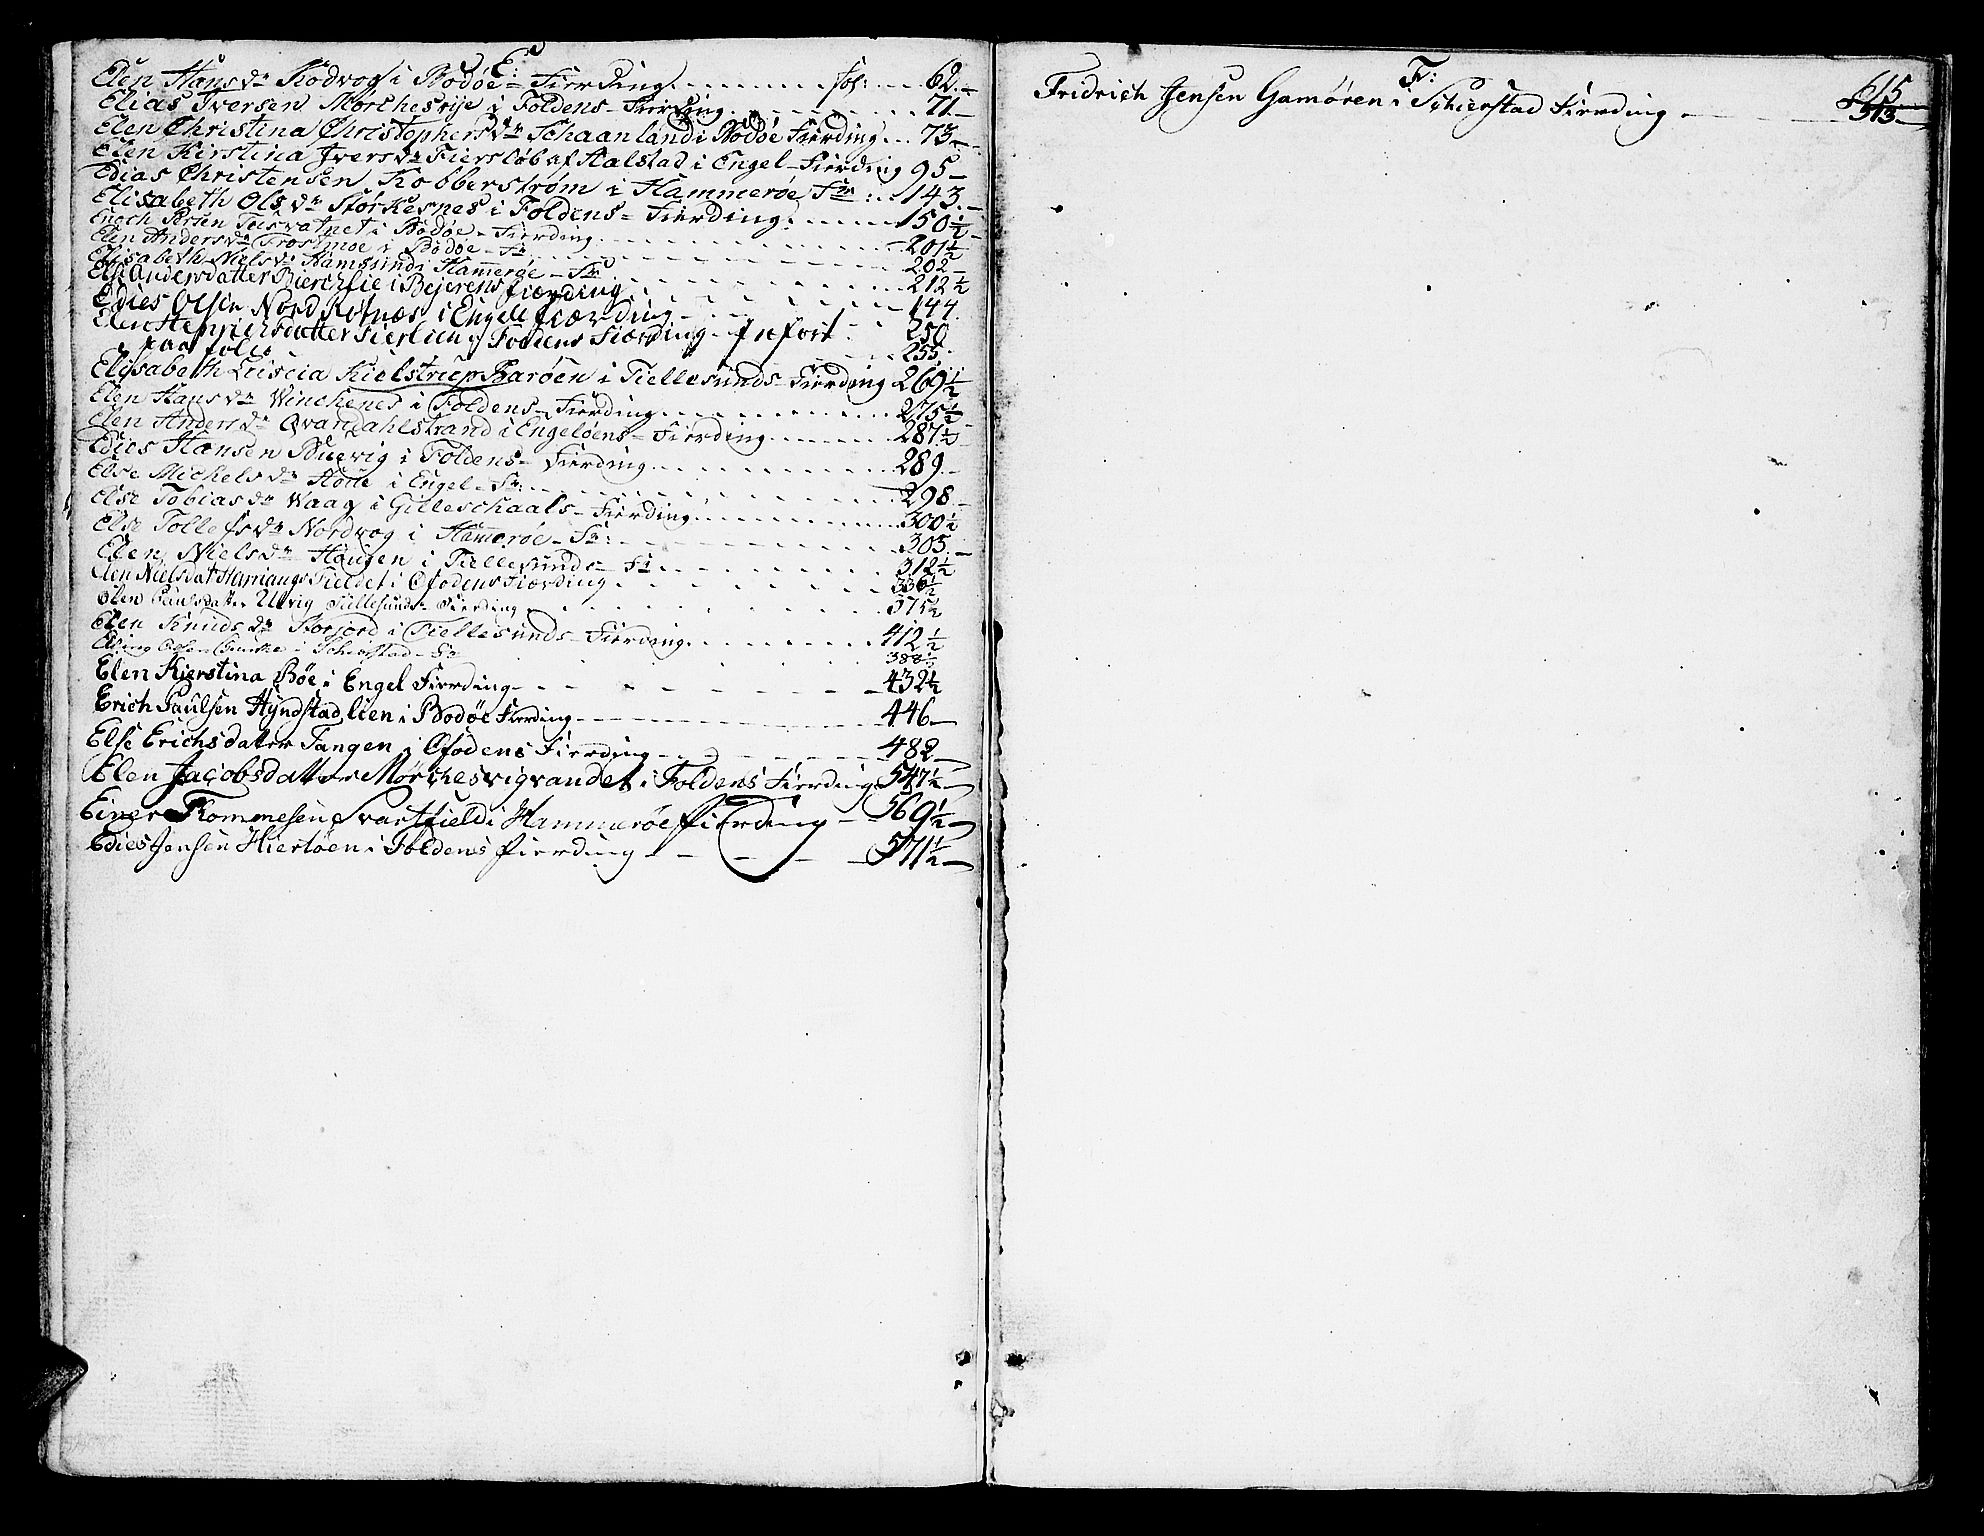 E:
Elen Hans dr Kodvog i Bodøe- Fierding fol: 62.
Elias Iversen Morchesvije i Foldens- Fierding 71
Elen Christina Christophers dr Schaanland i Bodøe Fierding 73
Elen Kirstina Ivers dr Fiersløb af Aalstad i Engel-Fierding 95
Edias Christensen Kobberstrøm i Hammerøe Fr: 143.
Elisabeth Ols dr Storkesnes i Foldens- Fierding 150½
Enoch i Bodøe- Fierding 201½
Elen Anders dr Trostmoe i Bodøe- Fr 202
Elisabeth Niels dr Hamsund i Hamerøe- Fr 212½
Else Andersdatter i Bejerens fierding 144.
Edies Olsen Nord i Engele fierding 250
Elen i Foldens Fierding Infort
paa folio 255.
Elisabeth Luiscia Kielstrup Barøen i Tiellesunds- Fierding 269½
Elen Hans dr Winchenes i Foldens- Fierding 275½
Elen Anders dr Qvandahlstrand i Engeløens- Fierding 287½
Edies Hansen i Foldens- Fierding 289
Else Michels dr i Engel- Fr: 298
Else Tobias dr Waag i Gilleschaals- Fierding 300½
Else Tollefs dr Nordvog i Hamerøe- Fr: 305
Elen Niels dr Haugen i Tiellesunds- Fr 312½
Elen Nielsdat Harriangs Fieldet i Ofodens Fierding 336½
Elen Paulsdatter Utvig Tiellesunds Fierding 375½
Elen Knuds dr Storjord i Tiellesunds- Fierding 412½
Elling Olsen i Schierstad- Fr 388½
Elen Kierstina Bøe i Engel Fierding 432½
Erich Paulsen Hyndstadlien i Bodøe Fierding 446
Else Erichsdatter Tangen i Ofodens Fierding 482
Elen Jacobsdatter Mørchesvigvandet i Foldens Fierding 547½
Einer Thommesen Svartfield i Hammerøe fierding 569½
Edies Jensen Hiertøen i Foldens fierding 571½
F:
Fridrich Jensen Gamøren i Schierstad Fierding 513
615